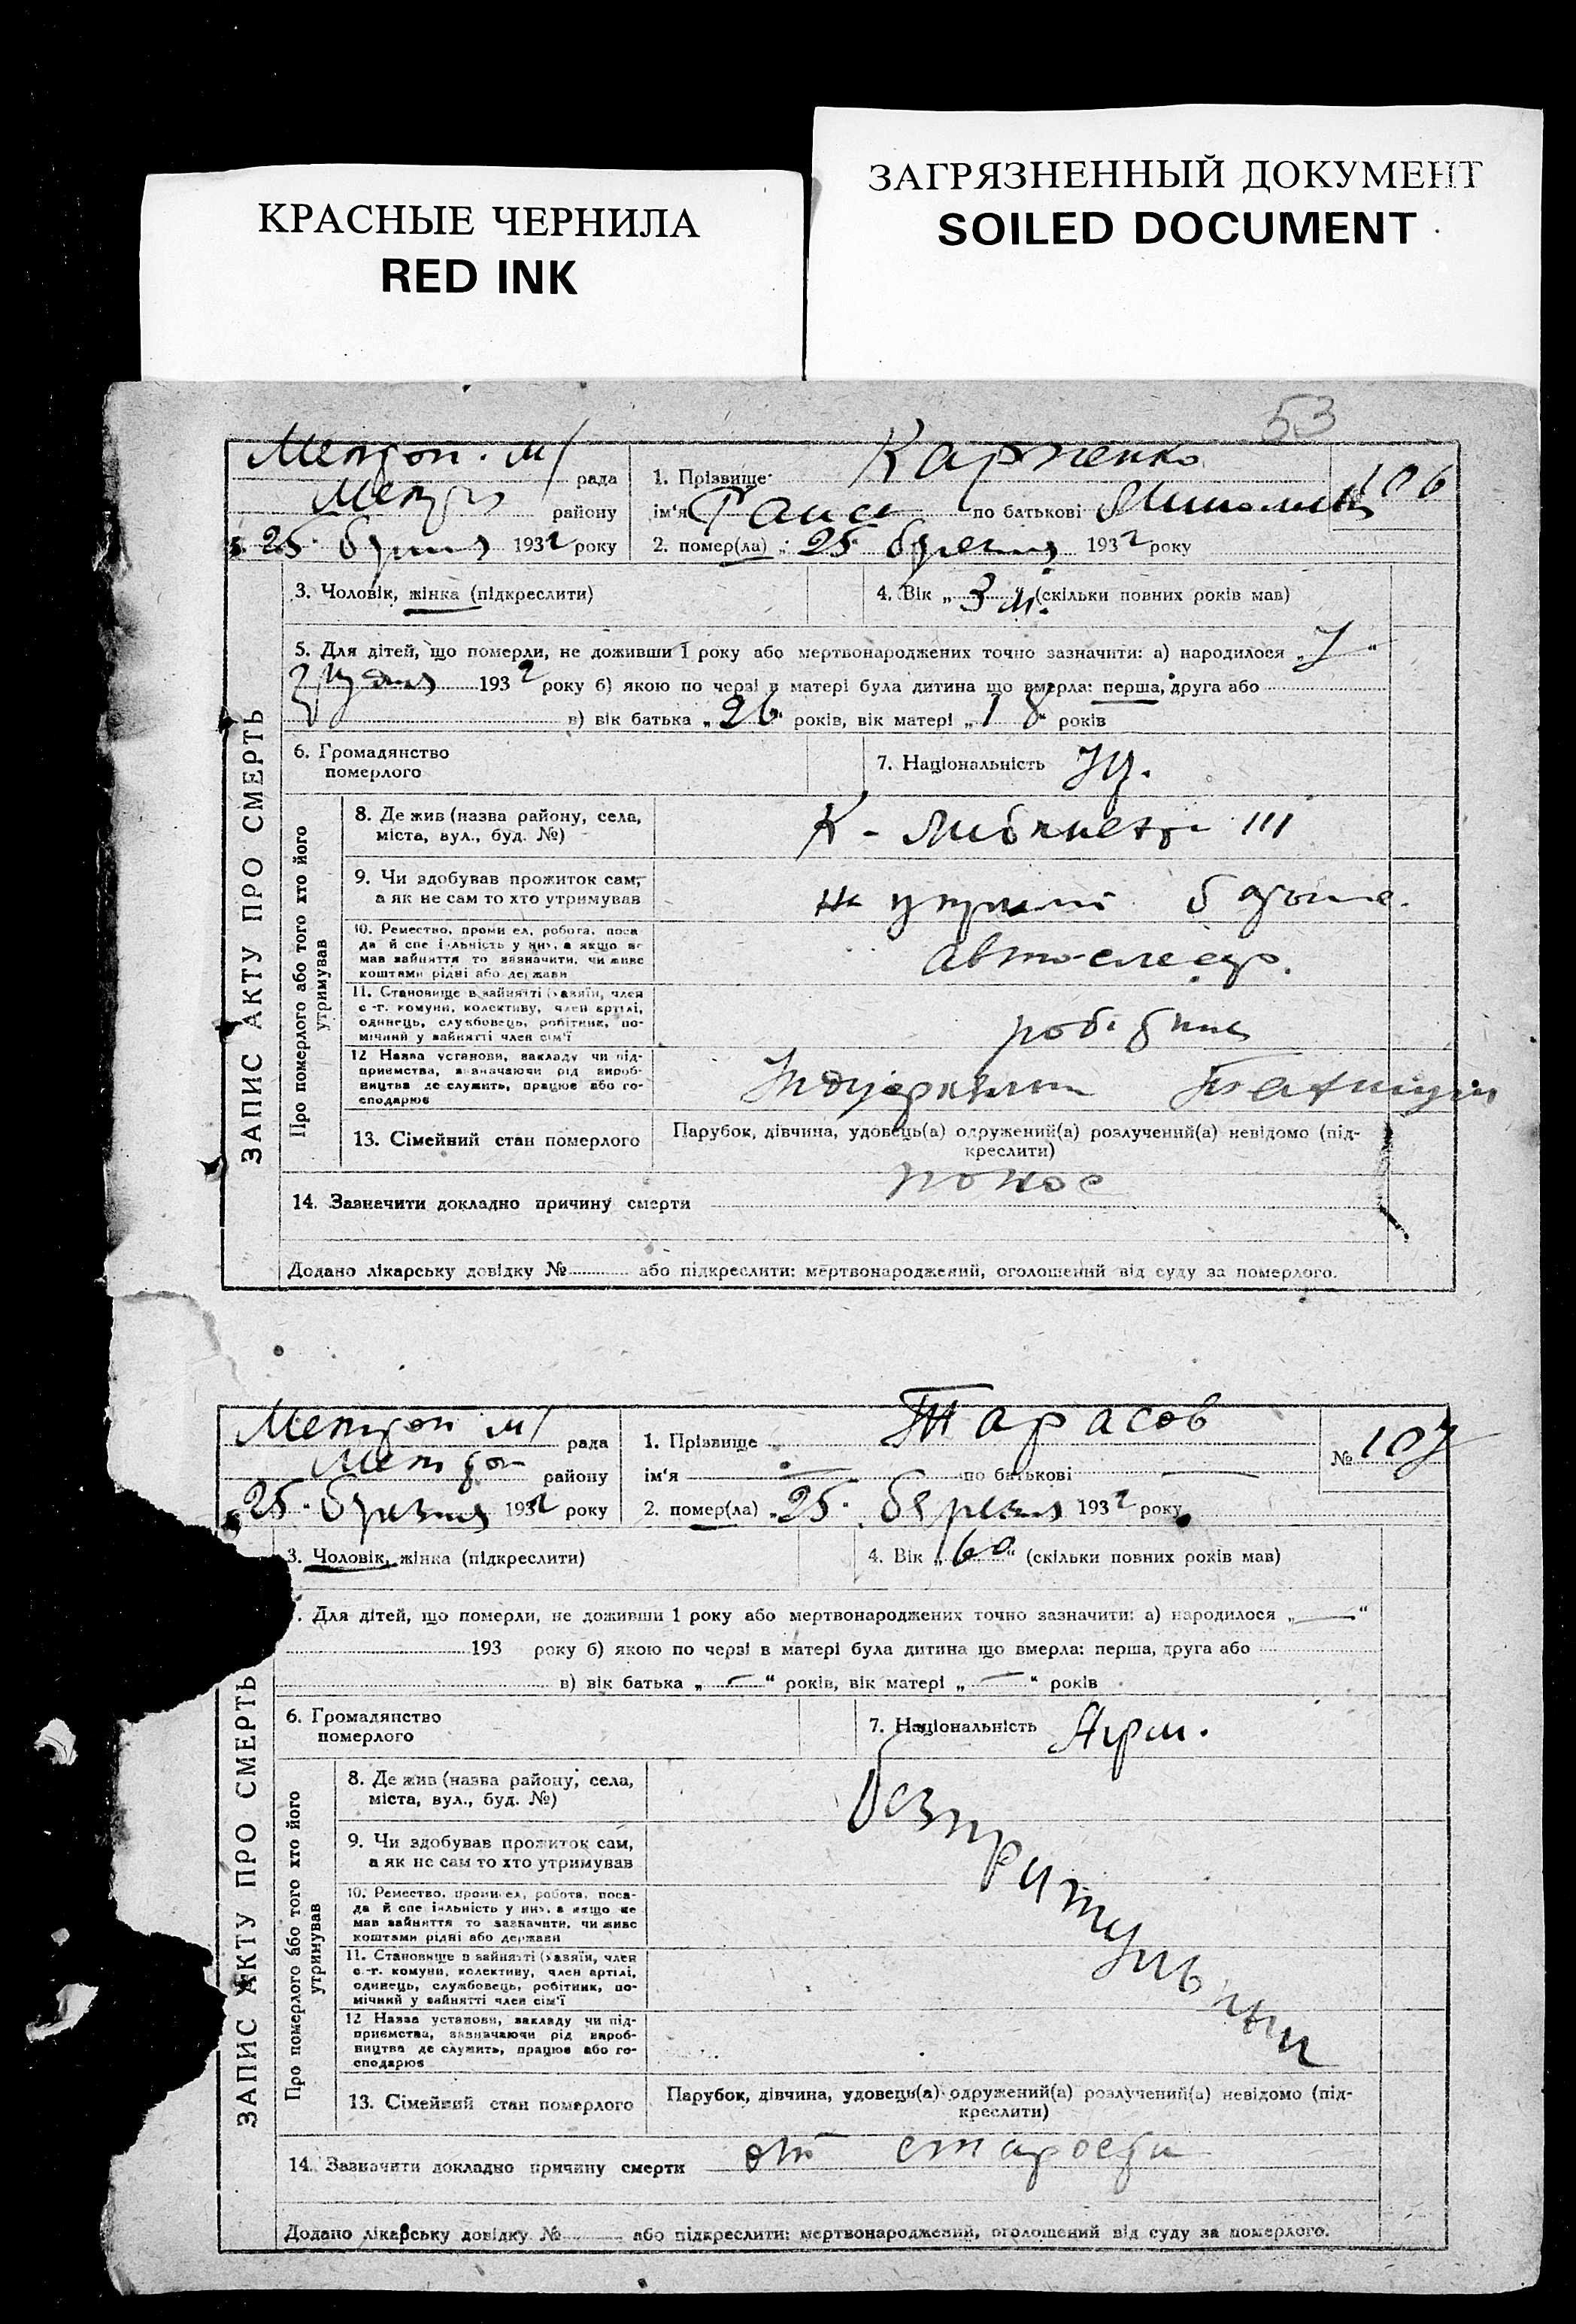 КРАСНЫЕ ЧЕРНИЛА
RED INK
ЗАГРЯЗНЕННЫЙ ДОКУМЕНТ
SOILED DOCUMENT
53
рада
1. Прізвище
106
району
ім'я Раиса по батькові
25 1932 року
2. помер(ла) „ 25 березня 1932 року
ЗАПИС АКТУ ПРО СМЕРТЬ
3. Чоловік, жінка (підкреслити)
4. Вік „ 3 м. (скільки повних років мав)
5. Для дітей, що померли, не доживши 1 року або мертвонароджених точно зазначити: а) народилося „ 7 “
1932 року б) якою по черзі в матері була дитина що вмерла: перша, друга або
в) вік батька „ 26 “ років, вік матері „ 18 “ років
6. Громадянство
померлого
7. Національність
Про померлого або того хто його
утримував
8. Де жив (назва району, села,
міста, вул., буд. №)
К - Либкнехта 111
9. Чи здобував прожиток сам,
а як не сам то хто утримував
10. Ремество, промисел, робота, поса-
да й спеціяльність у них, а якщо не
мав зайняття то зазначити, чи живе
коштами рідні або держави
11. Становище в зайнятті (хазяїн, член
с.-г. комуни, колективу, член артілі,
одинець, службовець, робітник, по-
мічний у зайнятті член сім'ї
робітник
12 Назва установи, закладу чи під-
приємства, зазначаючи рід вироб-
ництва де служить, працює або го-
сподарює
13. Сімейний стан померлого
Парубок, дівчина, удовець(а) одружений(а) розлучений(а) невідомо (під-
креслити)
14. Зазначити докладно причину смерти
понос
Додано лікарську довідку № або підкреслити: мертвонароджений, оголошений від суду за померлого.
рада
1. Прізвище Тарасов
№ 107
району
ім'я — по батькові —
25 березня 1932 року
2. помер(ла) „ 25 березня 1932 року
ЗАПИС АКТУ ПРО СМЕРТЬ
3. Чоловік, жінка (підкреслити)
4. Вік „ 60 “ (скільки повних років мав)
Для дітей, що померли, не доживши 1 року або мертвонароджених точно зазначити: а) народилося „ — “
193 року б) якою по черзі в матері була дитина що вмерла: перша, друга або
в) вік батька „ — “ років, вік матері „ — “ років
6. Громадянство
померлого
7. Національність
Про померлого або того хто його
утримував
8. Де жив (назва району, села,
міста, вул., буд. №)
9. Чи здобував прожиток сам,
а як не сам то хто утримував
10. Ремество, промисел, робота, поса-
да й спеціяльність у них, а якщо не
мав зайняття то зазначити, чи живе
коштами рідні або держави
11. Становище в зайнятті (хазяїн, член
с.-г. комуни, колективу, член артілі,
одинець, службовець, робітник, по-
мічний у зайнятті член сім'ї
12 Назва установи, закладу чи під-
приємства, зазначаючи рід вироб-
ництва де служить, працює або го-
сподарює
13. Сімейний стан померлого
Парубок, дівчина, удовець(а) одружений(а) розлучений(а) невідомо (під-
креслити)
14. Зазначити докладно причину смерти от старости
Додано лікарську довідку № або підкреслити: мертвонароджений, оголошений від суду за померлого.